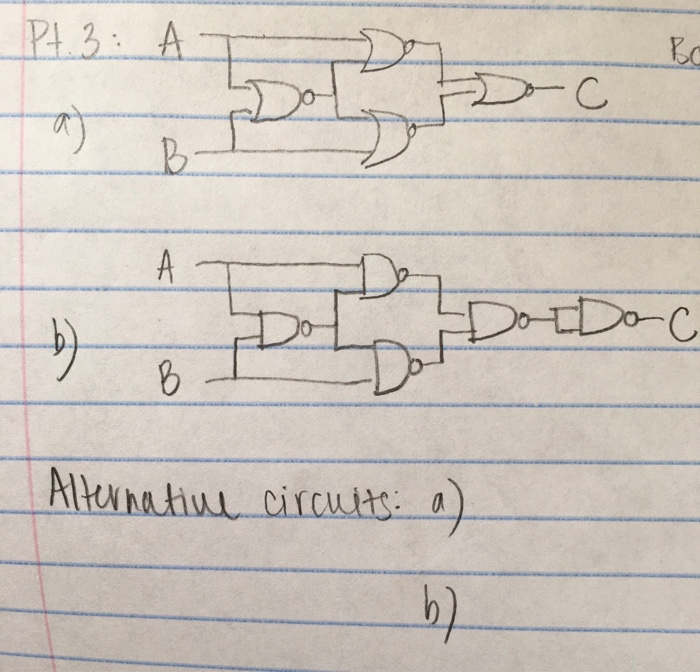 Pt. 3: A
Bo
a)
C
B
A
b)
C
B
Alternative circuits: a)
b)